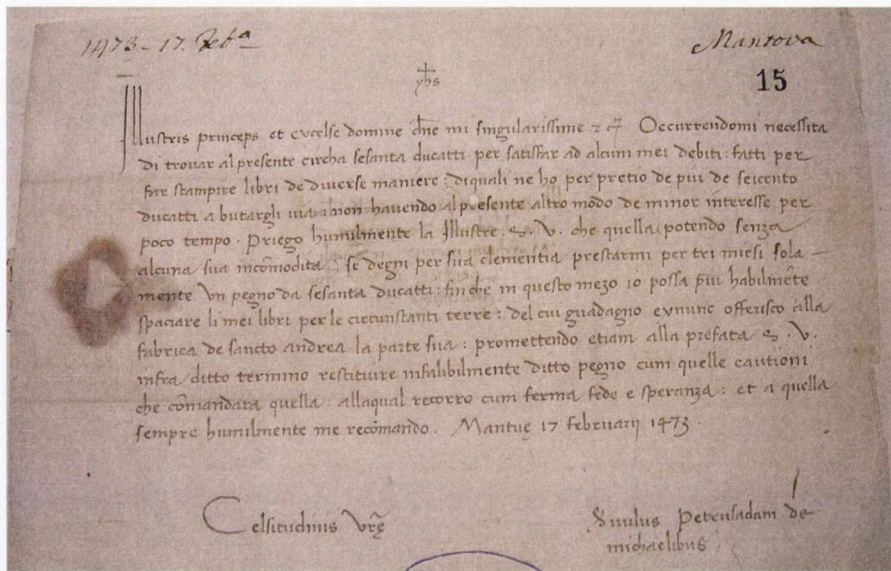 1473 - 17. Feb.a
Mantova
15
yhs
Illustris princeps et excelse domine dne mi singularissime Occurrendomi necessita
di trovar al presente circha sesanta ducatti per satisfar ad alcuni mei debiti: fatti per
far stampire libri de diverse maniere: di quali ne ho per pretio de piu de seicento
ducatti a butargli via: non havendo al presente altro modo de minor interesse per
poco tempo. Priego humilmente la Illustre. S. V. che quella potendo senza
alcuna sua incomodita, se degni per sua clementia prestarmi per tri miesi sola
mente un pegno da sesanta ducatti: fin che in questo mezo io possa piu habilmete
spaciare li mei libri per le circunstanti terre: del cui guadagno exnunc offerisco alla
fabrica de sancto andrea la parte sua: promettendo etiam alla prefata S. V.
infra ditto termino restituire infalibilmente ditto pegno cum quelle cautioni
che comandara quella: allaqual recorro cum ferma fede e speranza: et a quella
sempre humilmente me recomando. Mantuę 17 februarij 1473.
Celsitudinis Vrę
Svulus Petrusadam de
michaelibus